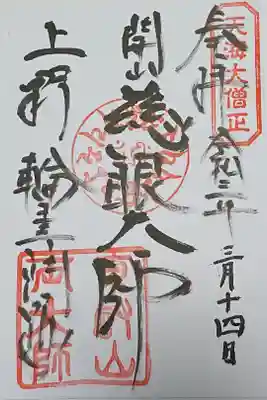 天海大僧正
奉拝 令和三年 三月十四日
開山 慈眼大師
上野 輪王寺 両大師
東叡山
両大師